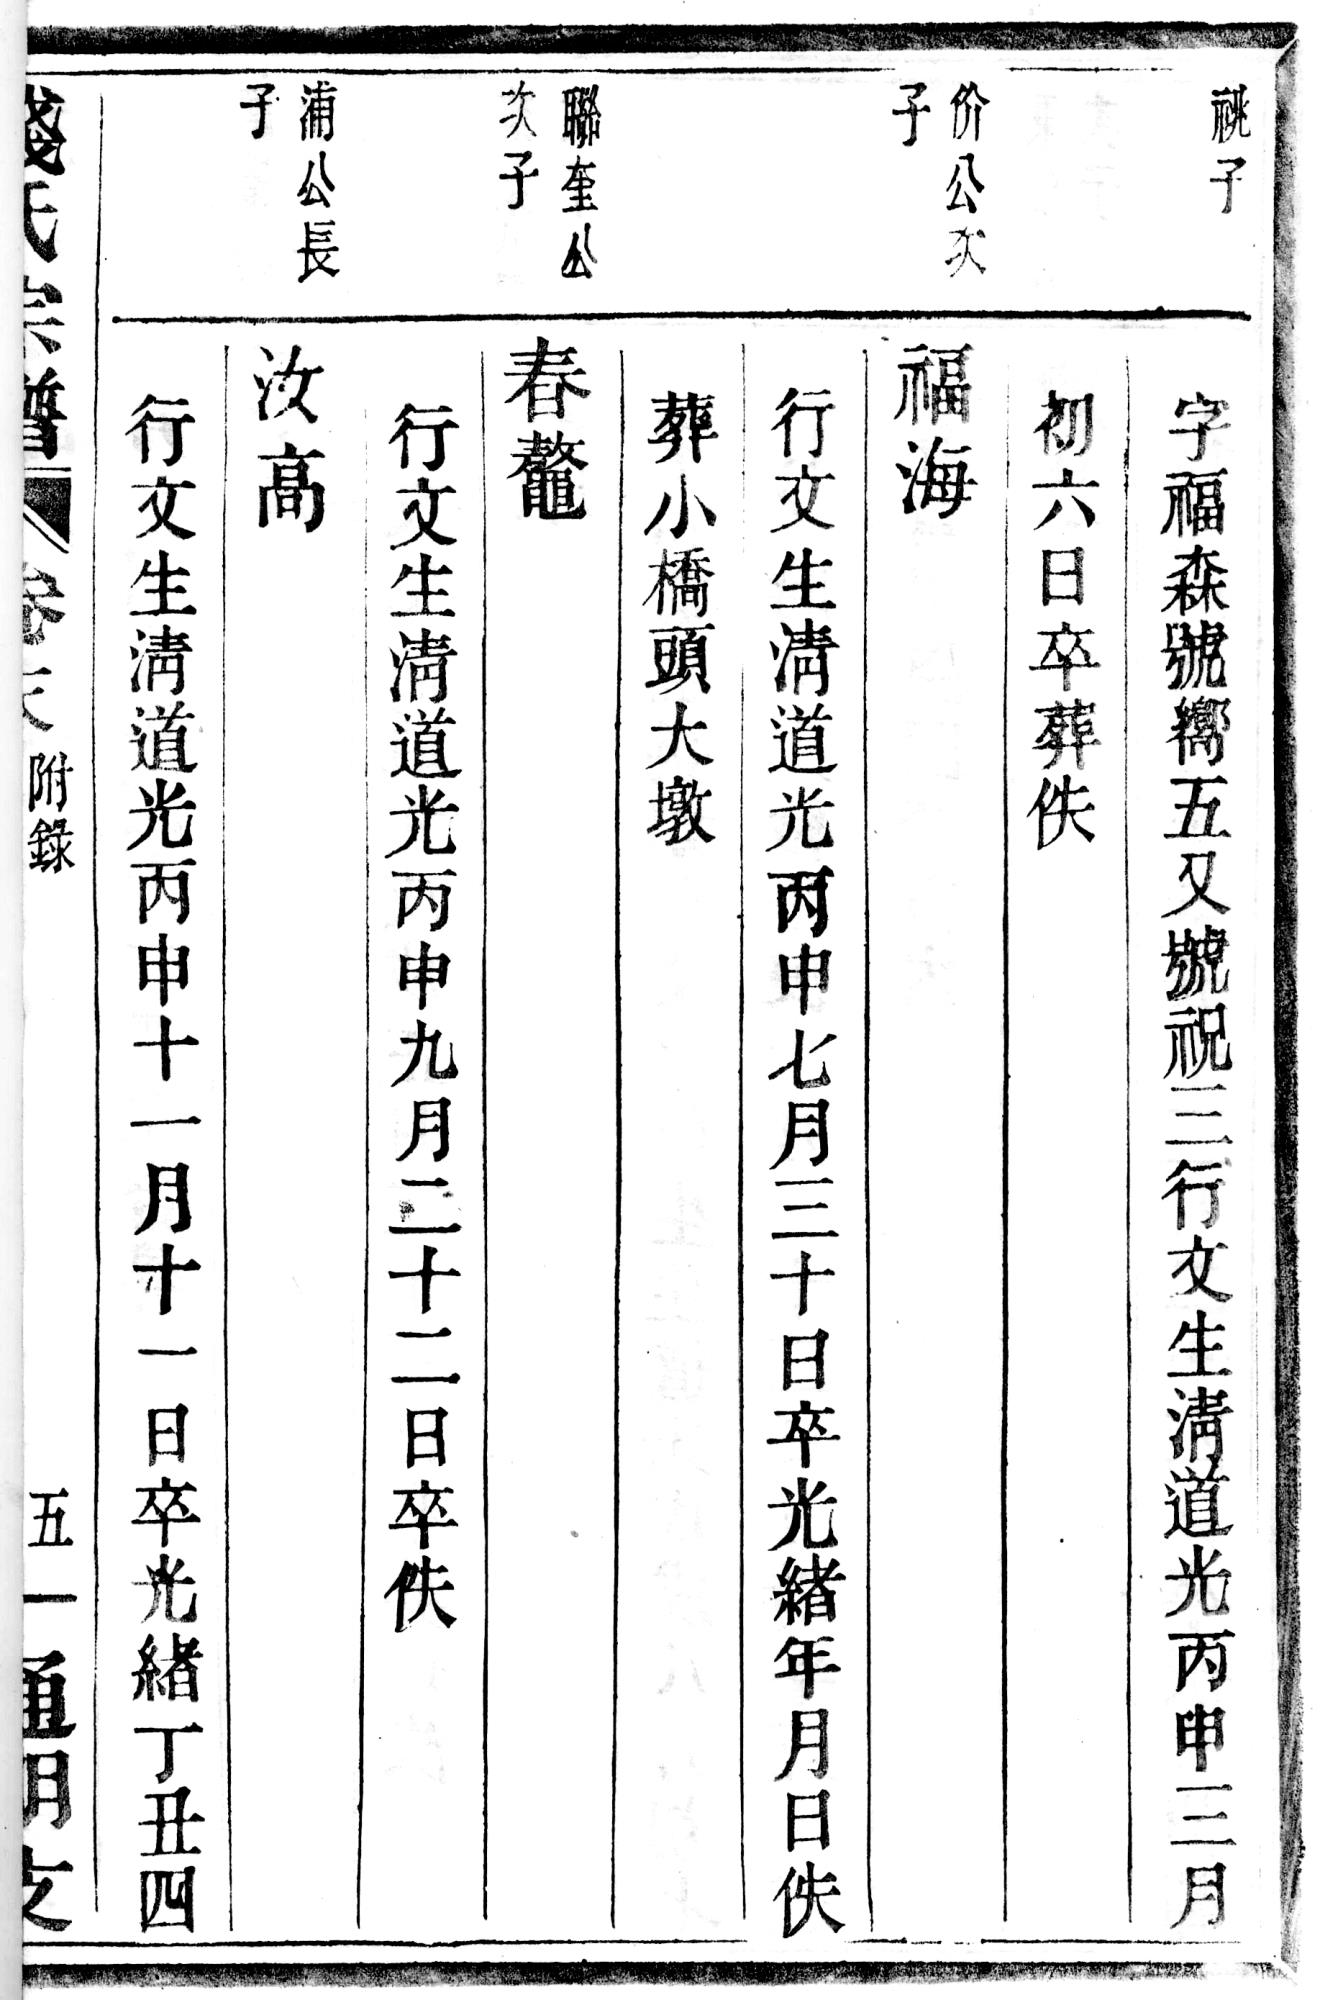 祧子
字福森號嚮五又號祝三行文生淸道光丙申三月
初六日卒葬佚
价公次
子
福海
行文生淸道光丙申七月三十日卒光緖年月日佚
葬小橋頭大墩
聯奎公
次子
春鼇
行文生淸道光丙申九月二十二日卒佚
浦公長
子
汝高
行文生淸道光丙申十一月十一日卒光緖丁丑四
錢氏宗譜 卷末 附錄 五一 通明支